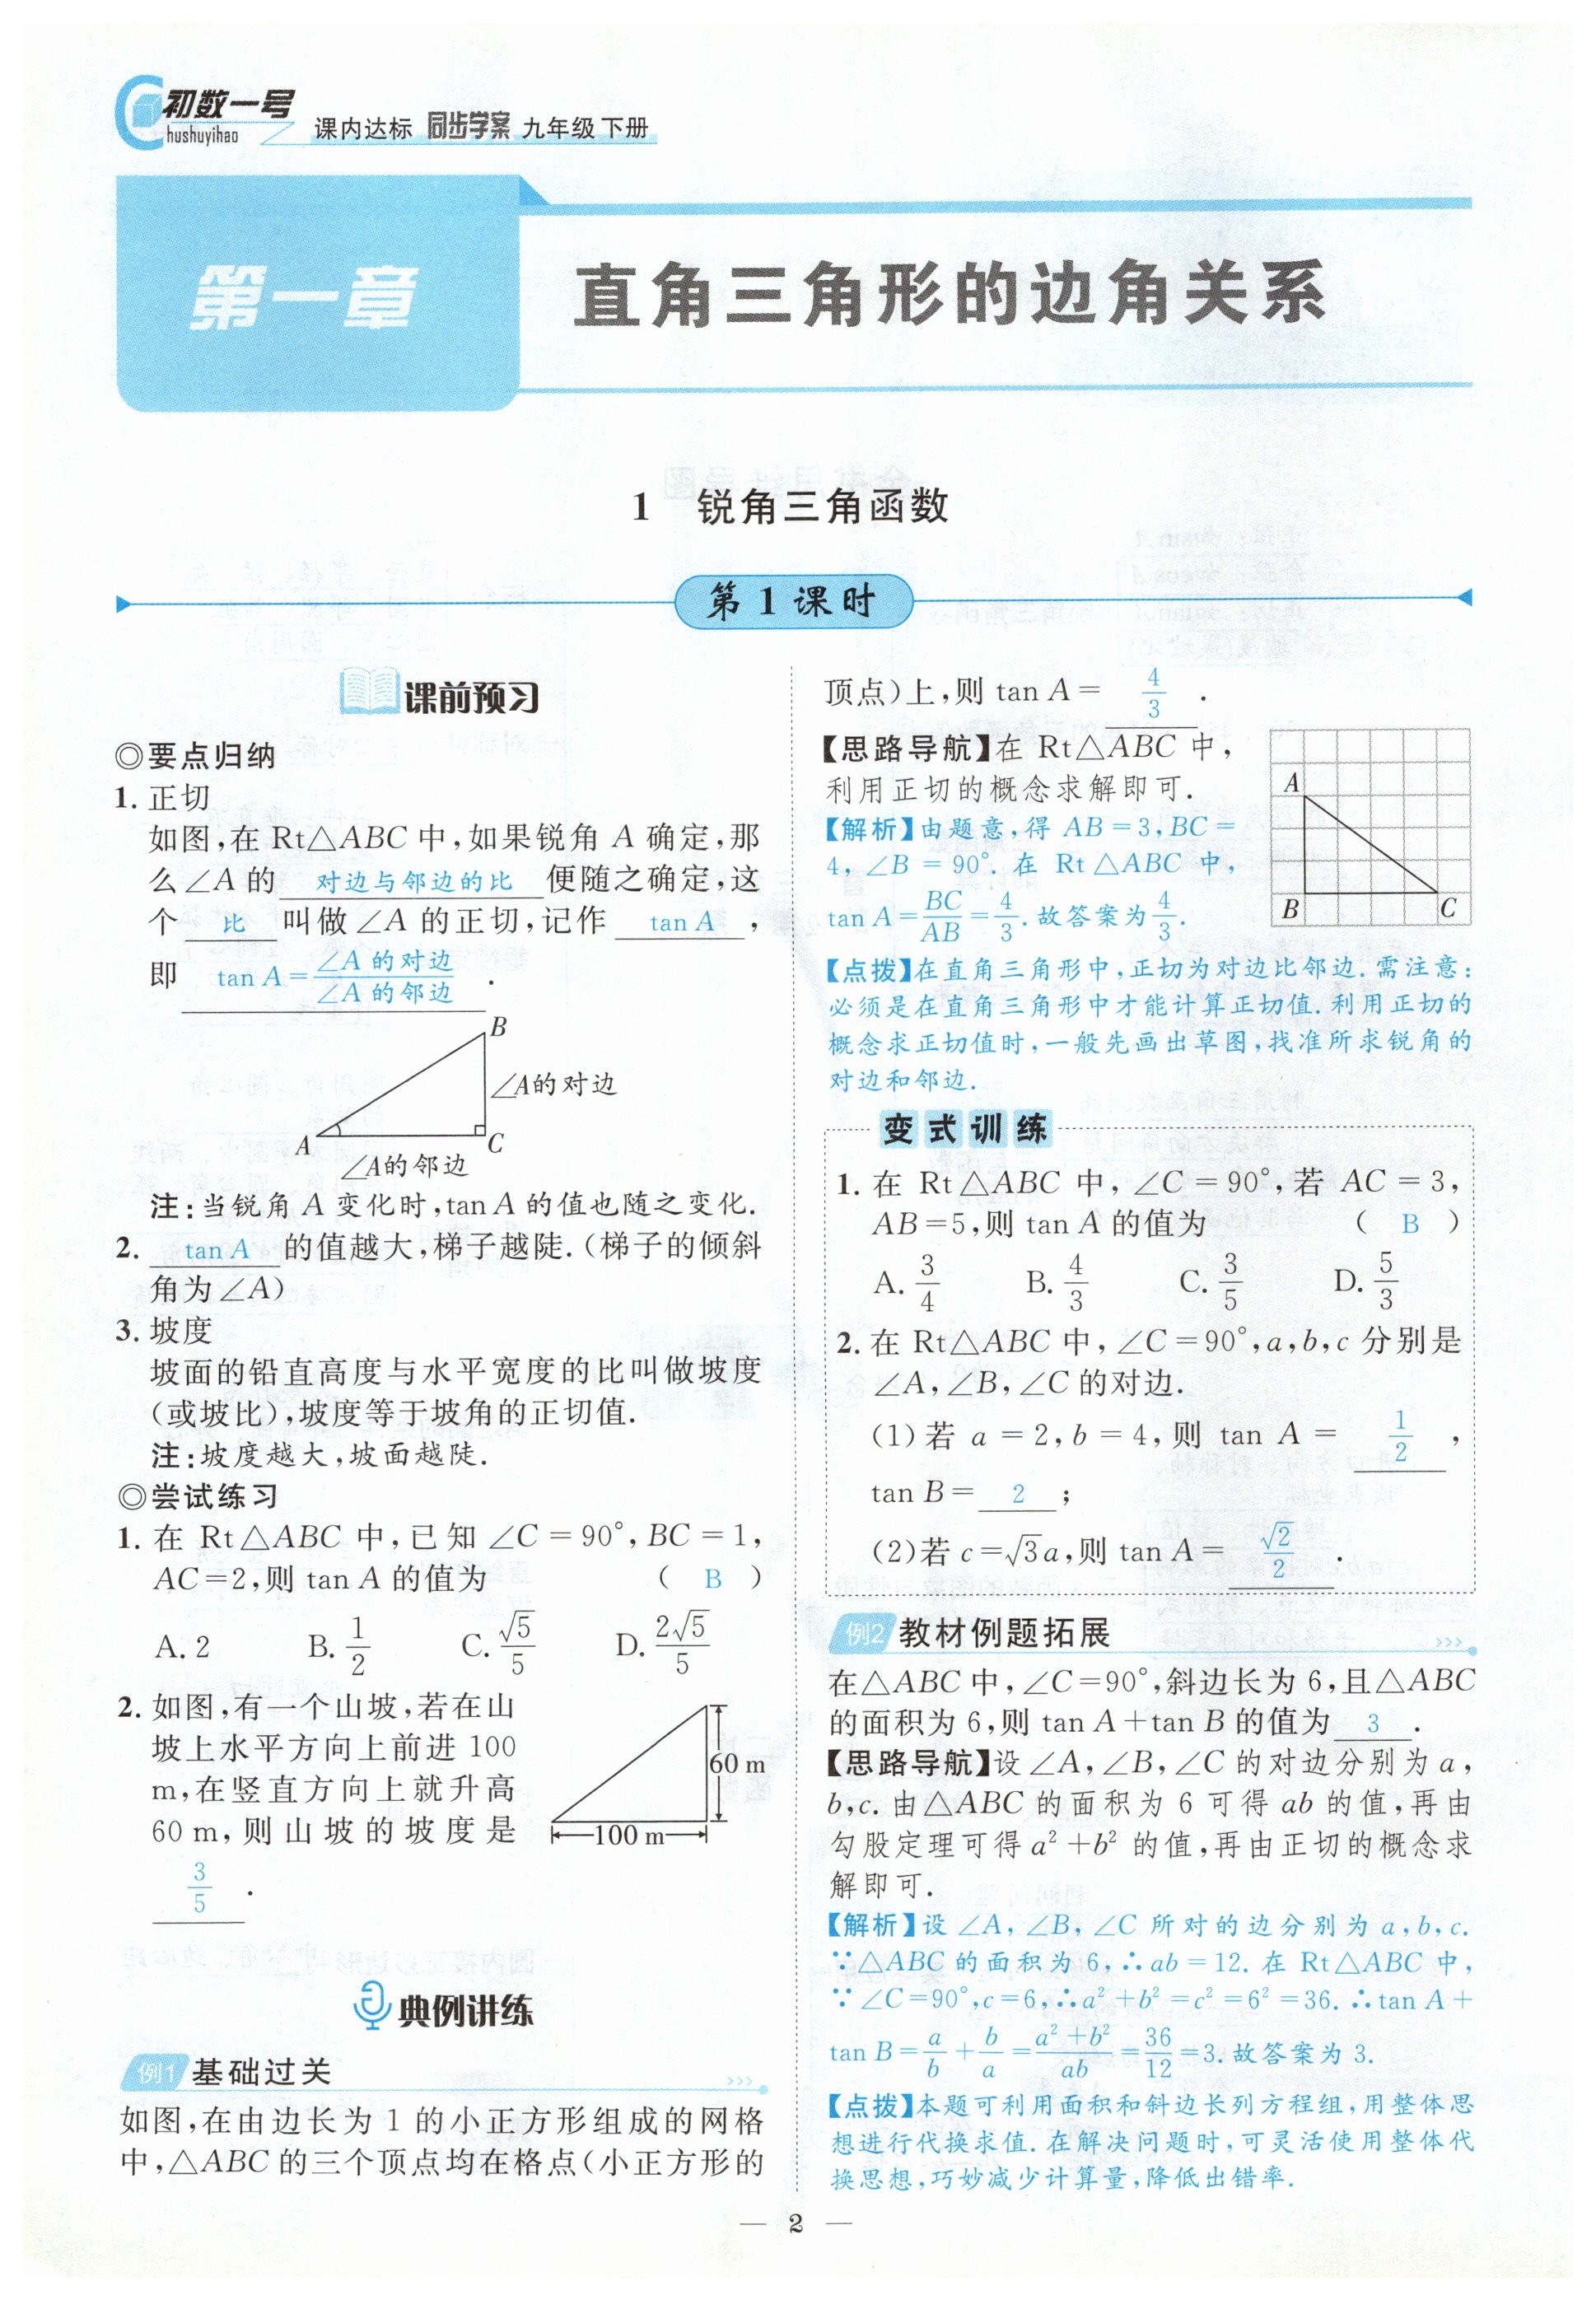 初数一号
Chushuyihao
课内达标 同步学案 九年级 下册
第一章
直角三角形的边角关系
1 锐角三角函数
第1课时
课前预习
◎要点归纳
1. 正切
如图,在 Rt△ABC 中,如果锐角 A 确定,那
么∠A 的 对边与邻边的比 便随之确定,这
个 比 叫做∠A 的正切,记作 tan A ,
即 tan A=∠A 的对边/∠A 的邻边 .
B
∠A的对边
A
C
∠A的邻边
注:当锐角 A 变化时,tan A 的值也随之变化.
2. tan A 的值越大,梯子越陡.(梯子的倾斜
角为∠A)
3. 坡度
坡面的铅直高度与水平宽度的比叫做坡度
(或坡比),坡度等于坡角的正切值.
注:坡度越大,坡面越陡.
◎尝试练习
1. 在 Rt△ABC 中,已知∠C=90°,BC=1,
AC=2,则 tan A 的值为 ( B )
A. 2 B. 1/2 C. √5/5 D. 2√5/5
2. 如图,有一个山坡,若在山
坡上水平方向上前进 100
m,在竖直方向上就升高
60 m,则山坡的坡度是
3/5 .
60 m
100 m
典例讲练
例1 基础过关
如图,在由边长为 1 的小正方形组成的网格
中,△ABC 的三个顶点均在格点(小正方形的
顶点)上,则 tan A= 4/3 .
【思路导航】在 Rt△ABC 中,
利用正切的概念求解即可.
【解析】由题意,得 AB=3,BC=
4,∠B=90°. 在 Rt△ABC 中,
tan A=BC/AB=4/3. 故答案为4/3.
A
B
C
【点拨】在直角三角形中,正切为对边比邻边. 需注意:
必须是在直角三角形中才能计算正切值. 利用正切的
概念求正切值时,一般先画出草图,找准所求锐角的
对边和邻边.
变式训练
1. 在 Rt△ABC 中,∠C=90°,若 AC=3,
AB=5,则 tan A 的值为 ( B )
A. 3/4 B. 4/3 C. 3/5 D. 5/3
2. 在 Rt△ABC 中,∠C=90°,a,b,c 分别是
∠A,∠B,∠C 的对边.
(1)若 a=2,b=4,则 tan A= 1/2 ,
tan B= 2 ;
(2)若 c=√3a,则 tan A= √2/2 .
例2 教材例题拓展
在△ABC 中,∠C=90°,斜边长为 6,且△ABC
的面积为 6,则 tan A+tan B 的值为 3 .
【思路导航】设∠A,∠B,∠C 的对边分别为 a,
b,c. 由△ABC 的面积为 6 可得 ab 的值,再由
勾股定理可得 a²+b² 的值,再由正切的概念求
解即可.
【解析】设∠A,∠B,∠C 所对的边分别为 a,b,c.
∵△ABC 的面积为 6,∴ab=12. 在 Rt△ABC 中,
∵∠C=90°,c=6,∴a²+b²=c²=6²=36. ∴tan A+
tan B=a/b+b/a=a²+b²/ab=36/12=3. 故答案为 3.
【点拨】本题可利用面积和斜边长列方程组,用整体思
想进行代换求值. 在解决问题时,可灵活使用整体代
换思想,巧妙减少计算量,降低出错率.
— 2 —